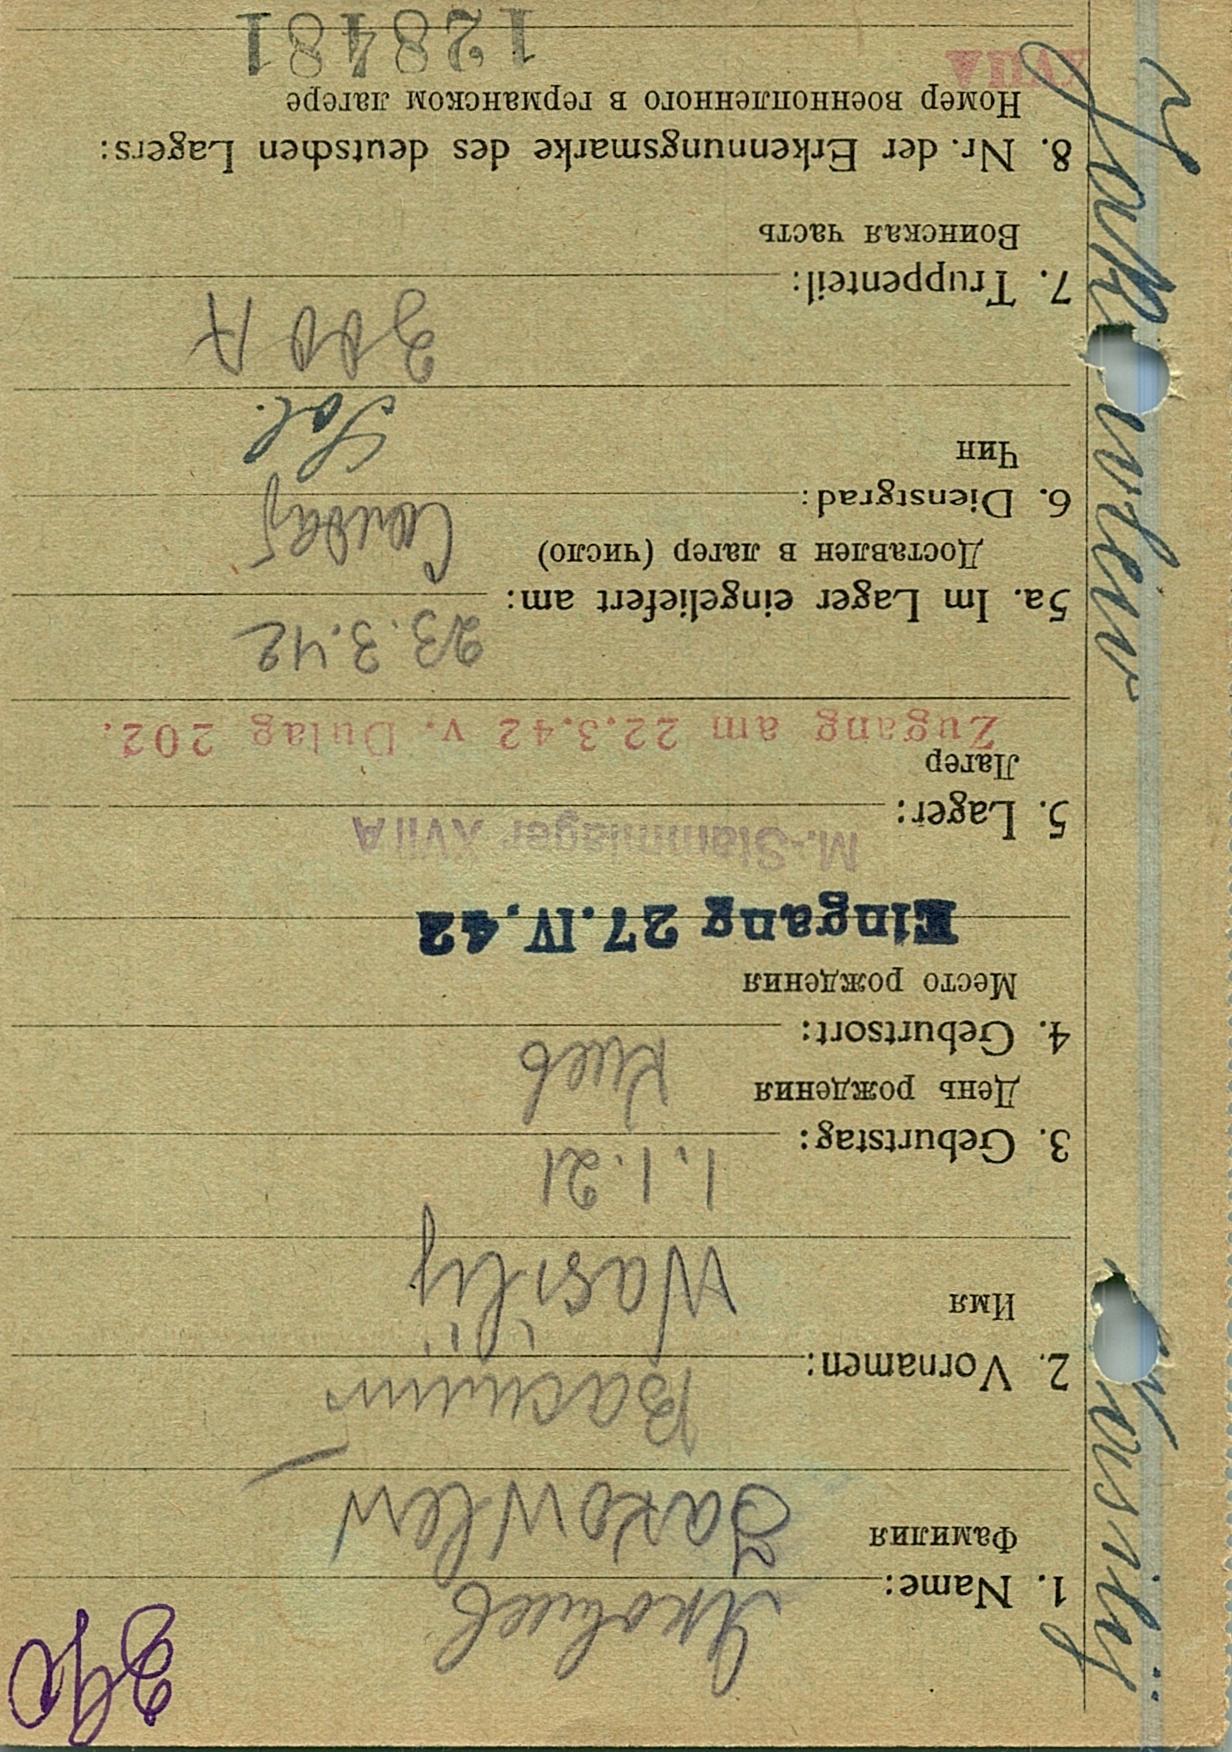 Jakowlew Wasilij
1. Name: Яковлев
Фамилия Jakowlew
2. Vornamen: Василий
Имя Wasilij
3. Geburtstag: 1.1.21
День рождения
4. Geburtsort: Киев
Место рождения
Eingang 27.IV.42
M.-Stammlager XVII A
5. Lager:
Лагерь
Zugang am 22.3.42 v. Dulag 202.
23.3.42
5a. Im Lager eingeliefert am:
Доставлен в лагерь (число)
Солдат
6. Dienstgrad:
Чин
Sol.
7. Truppenteil:
Воинская часть
8. Nr. der Erkennungsmarke des deutschen Lagers:
Номер военнопленного в германском лагере
XVII A 128481